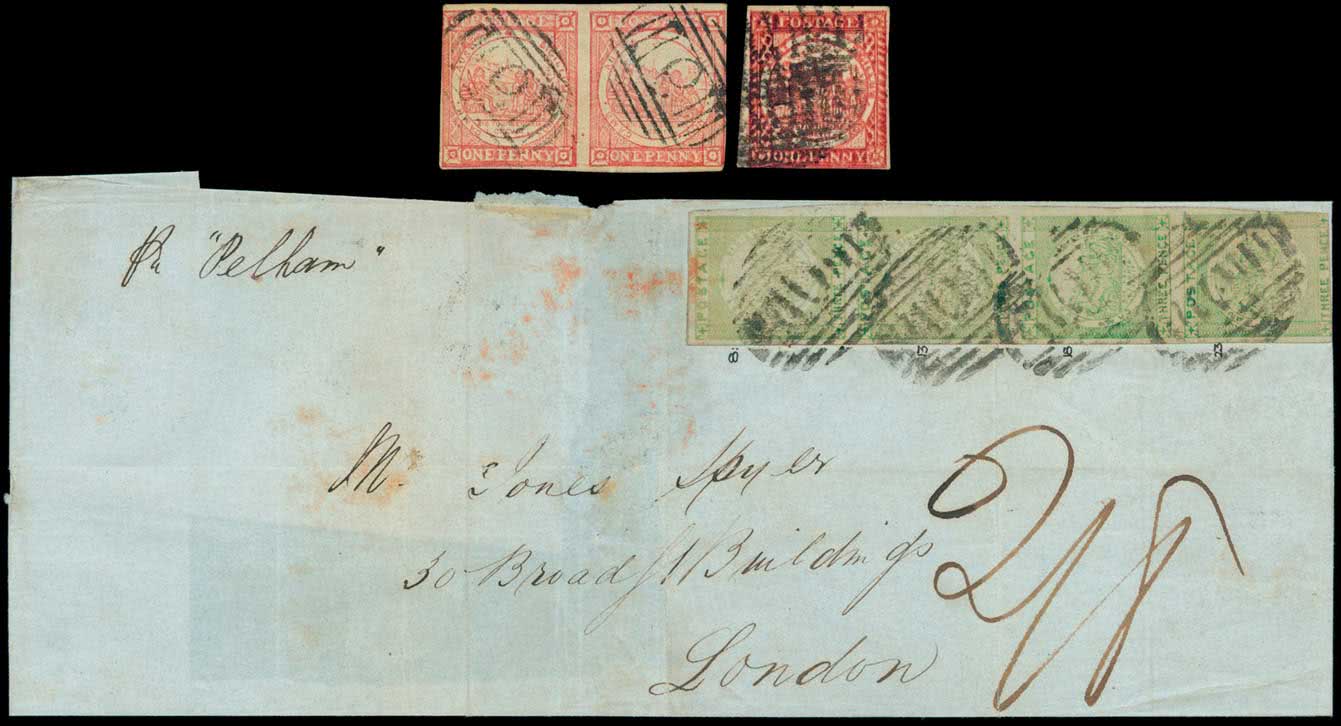 POSTAGE POSTAGE POSTAGE
ONE PENNY ONE PENNY ONE PENNY
"Pelham"
POSTAGE THREE PENCE POSTAGE THREE PENCE POSTAGE THREE PENCE
13 18 23
M. Jones
30 Broad St Buildings
London
2/8